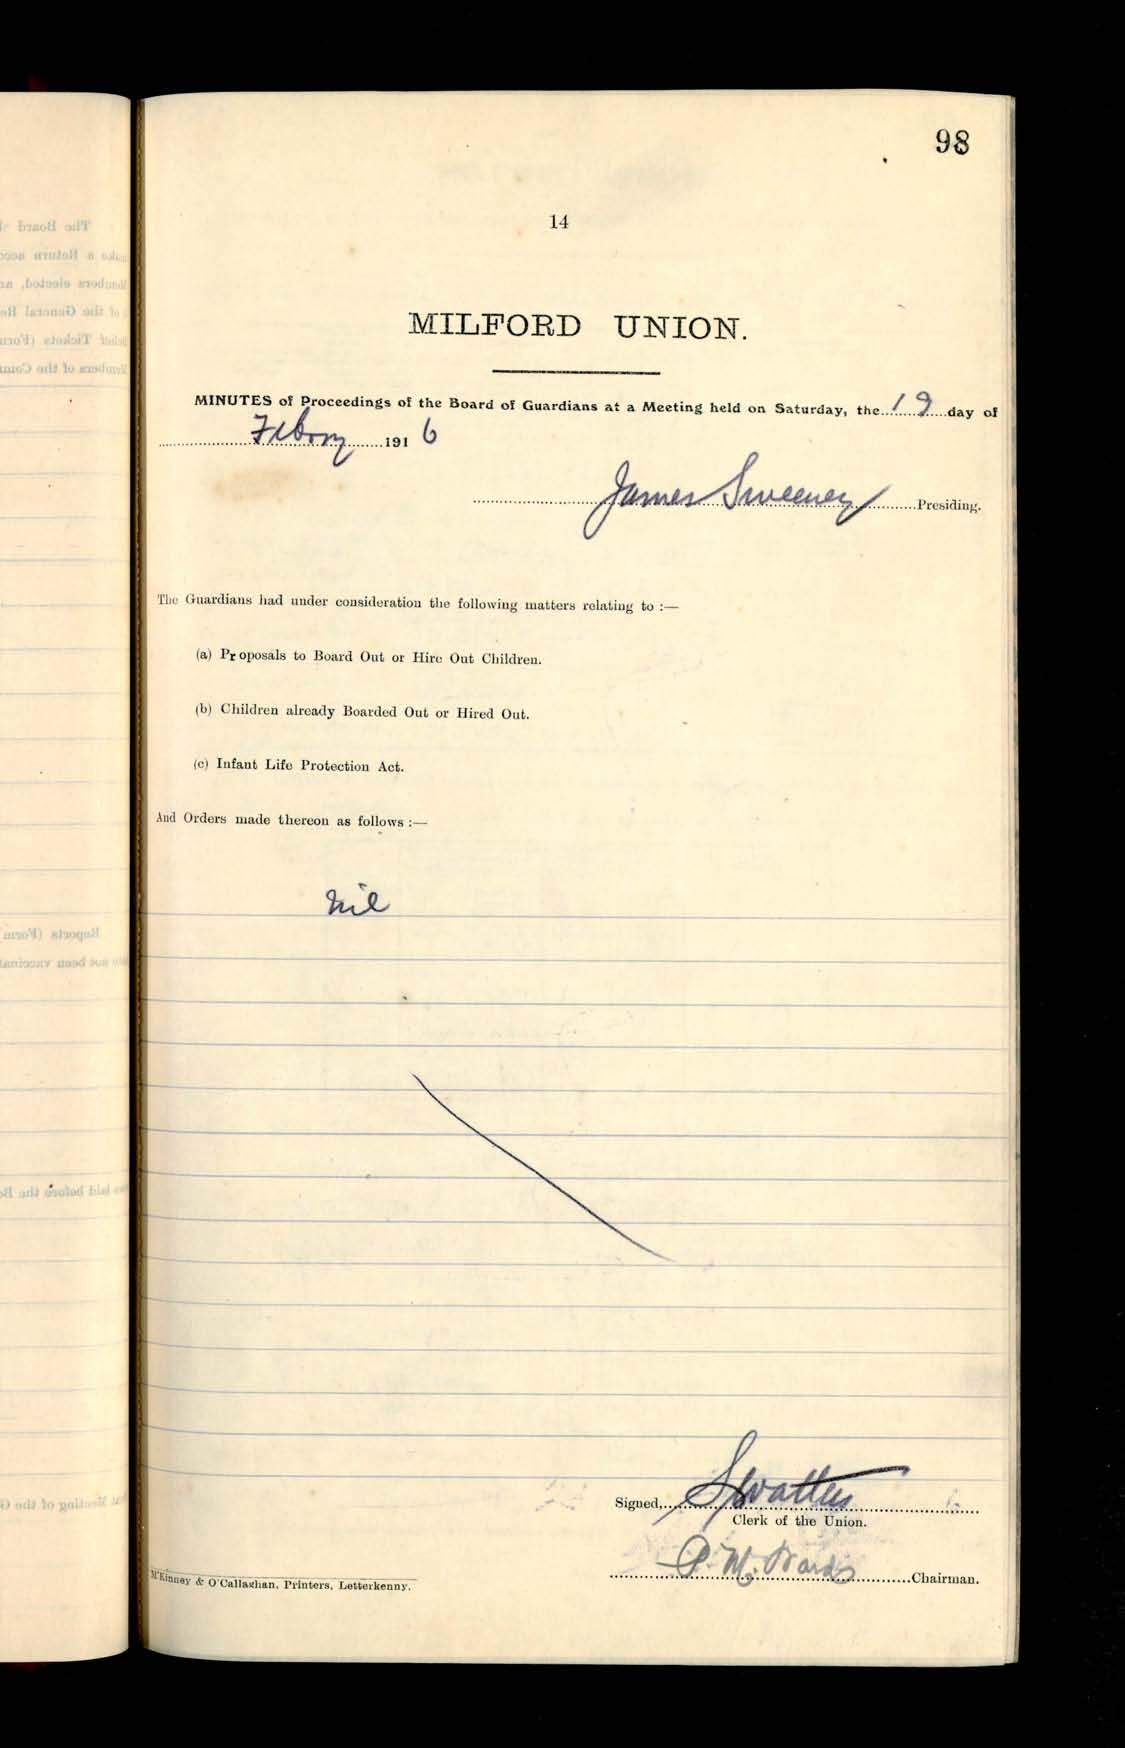 98
14
MILFORD UNION.
MINUTES of Proceedings of the Board of Guardians at a Meeting held on Saturday, the 19 day of
Febry 1916
James Sweeney Presiding.
The Guardians had under consideration the following matters relating to :—
(a) Proposals to Board Out or Hire Out Children.
(b) Children already Boarded Out or Hired Out.
(c) Infant Life Protection Act.
And Orders made thereon as follows :—
Nil
Signed,
Clerk of the Union.
Chairman.
M'Kinney & O'Callaghan, Printers, Letterkenny.